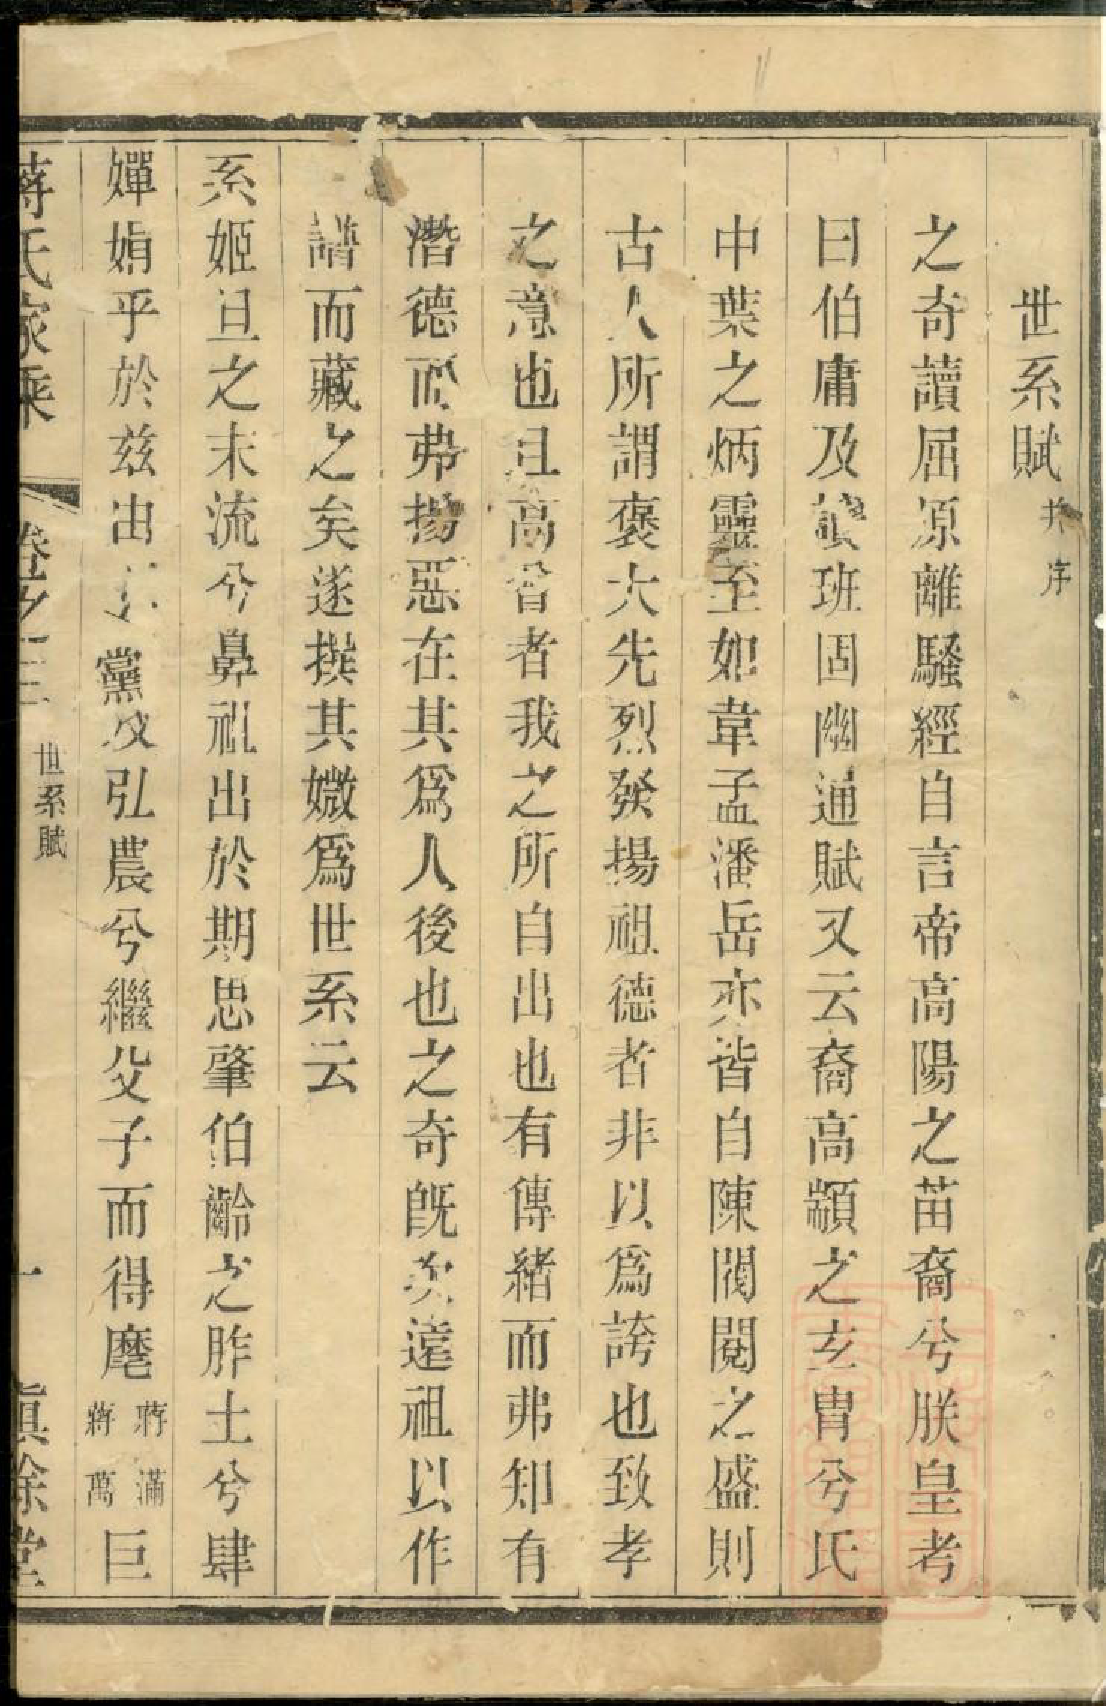 世系賦并序
之奇讀屈原離騷經自言帝高陽之苗裔兮朕皇考
曰伯庸及讀班固幽通賦又云裔高顓之玄胄兮氏
中葉之炳靈至如韋孟潘岳亦皆自陳閥閱之盛則
古人所謂褒大先烈發揚祖德者非以爲誇也致孝
之意也且高曾者我之所自出也有傳緒而弗知有
潛德而弗揚惡在其爲人後也之奇旣次遠祖以作
譜而藏之矣遂撰其媺爲世系云
系姬旦之末流兮鼻祖出於期思肇伯齡之胙土兮肆
嬋媍乎於兹由 黨及弘農兮繼父子而得麾蔣滿蔣萬巨
蔣氏家乘 卷之三 世系賦 一 愼餘堂